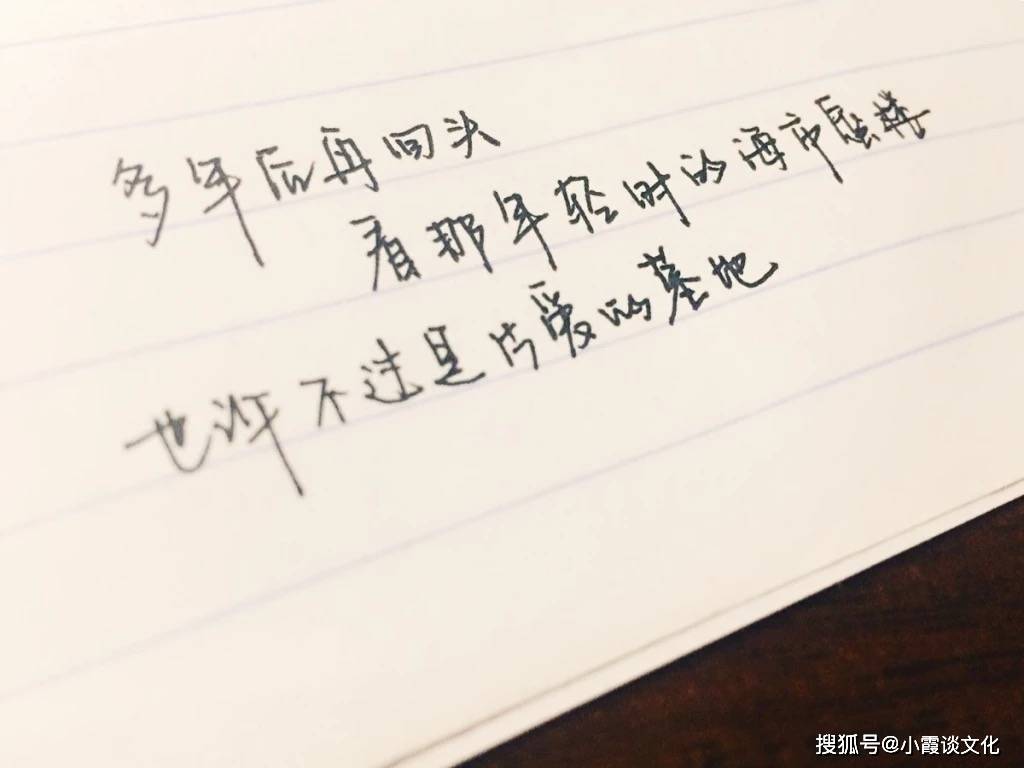 多年后再回头
看那年轻时的海市蜃楼
也许不过是片爱的墓地
搜狐号@小霞谈文化